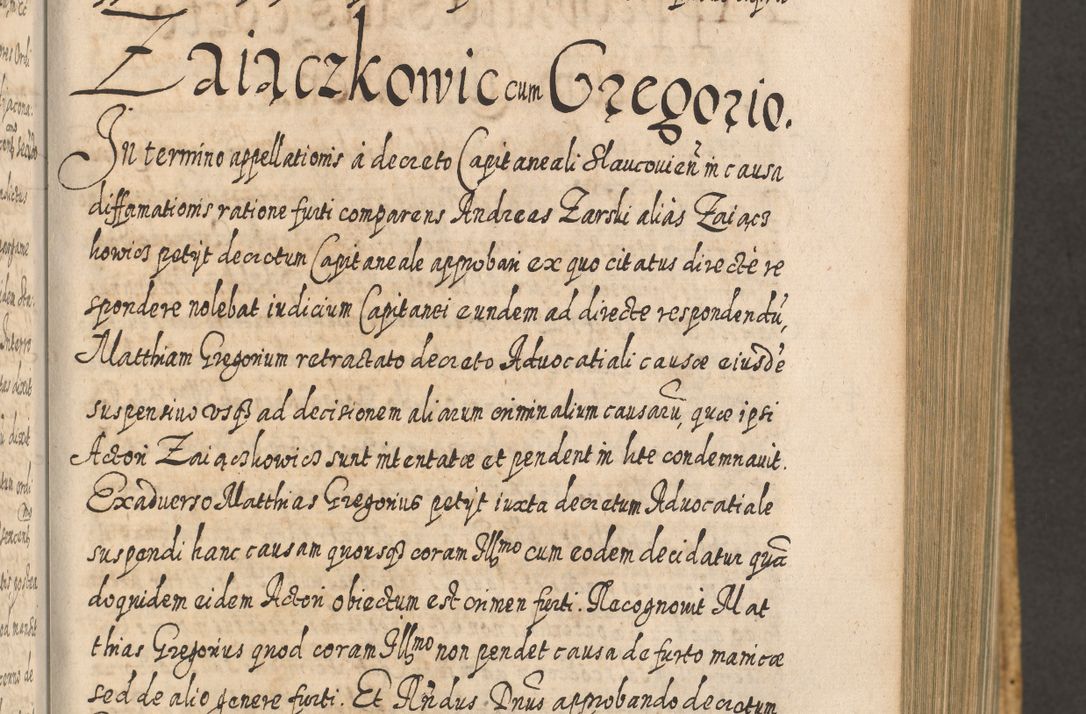 Zaiączkowic cum Gregorio.
In termino appellationis à decreto Capitaneali Slaucouien̄ in causa
diffamationis ratione furti comparens Andreas Zarski aliàs Zaiącz
kowicz petijt decretum Capitaneale approbari ex quo citatus directè re
spondere nolebat iudicium Capitanei eundem ad directe respondendū,
Matthiam Gregorium retractato decreto Aduocatiali causæ eiusdē
suspensiuo vsq3 ad decisionem aliarum criminalium causarū, quæ ipsi
Actori Zaiączkowicz sunt intentatæ et pendent in lite condemnauit.
Exaduerso Matthias Gregorius petijt iuxta decretum Aduocatiale
suspendi hanc causam quousq3 coram Illmo cum eodem decidatur quā
doquidem eidem Actori obiectum est crimen furti. Recognouit Mat
thias Gregorius quod coram Illmo non pendet causa de furto maricæ
sed de alio genere furti. Et Rn̄dus Dnūs approbando decretum